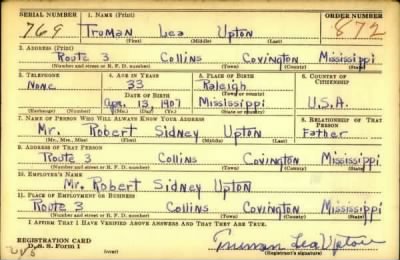 SERIAL NUMBER 1. NAME (Print) ORDER NUMBER
769 Truman Lea Upton 872
(First) (Middle) (Last)
2. ADDRESS (Print)
Route 3 Collins Covington Mississippi
(Number and street or R. F. D. number) (Town) (County) (State)
3. TELEPHONE 4. AGE IN YEARS 5. PLACE OF BIRTH 6. COUNTRY OF CITIZENSHIP
None 33 Raleigh
DATE OF BIRTH (Town or county)
Apr. 13, 1907 Mississippi U.S.A.
(Exchange) (Number) (Mo.) (Day) (Yr.) (State or country)
7. NAME OF PERSON WHO WILL ALWAYS KNOW YOUR ADDRESS 8. RELATIONSHIP OF THAT PERSON
Mr. Robert Sidney Upton Father
(Mr., Mrs., Miss) (First) (Middle) (Last)
9. ADDRESS OF THAT PERSON
Route 3 Collins Covington Mississippi
(Number and street or R. F. D. number) (Town) (County) (State)
10. EMPLOYER'S NAME
Mr. Robert Sidney Upton
11. PLACE OF EMPLOYMENT OR BUSINESS
Route 3 Collins Covington Mississippi
(Number and street or R. F. D. number) (Town) (County) (State)
I AFFIRM THAT I HAVE VERIFIED ABOVE ANSWERS AND THAT THEY ARE TRUE.
REGISTRATION CARD
D. S. S. Form 1 (over) Truman Lea Upton
(Registrant's signature)